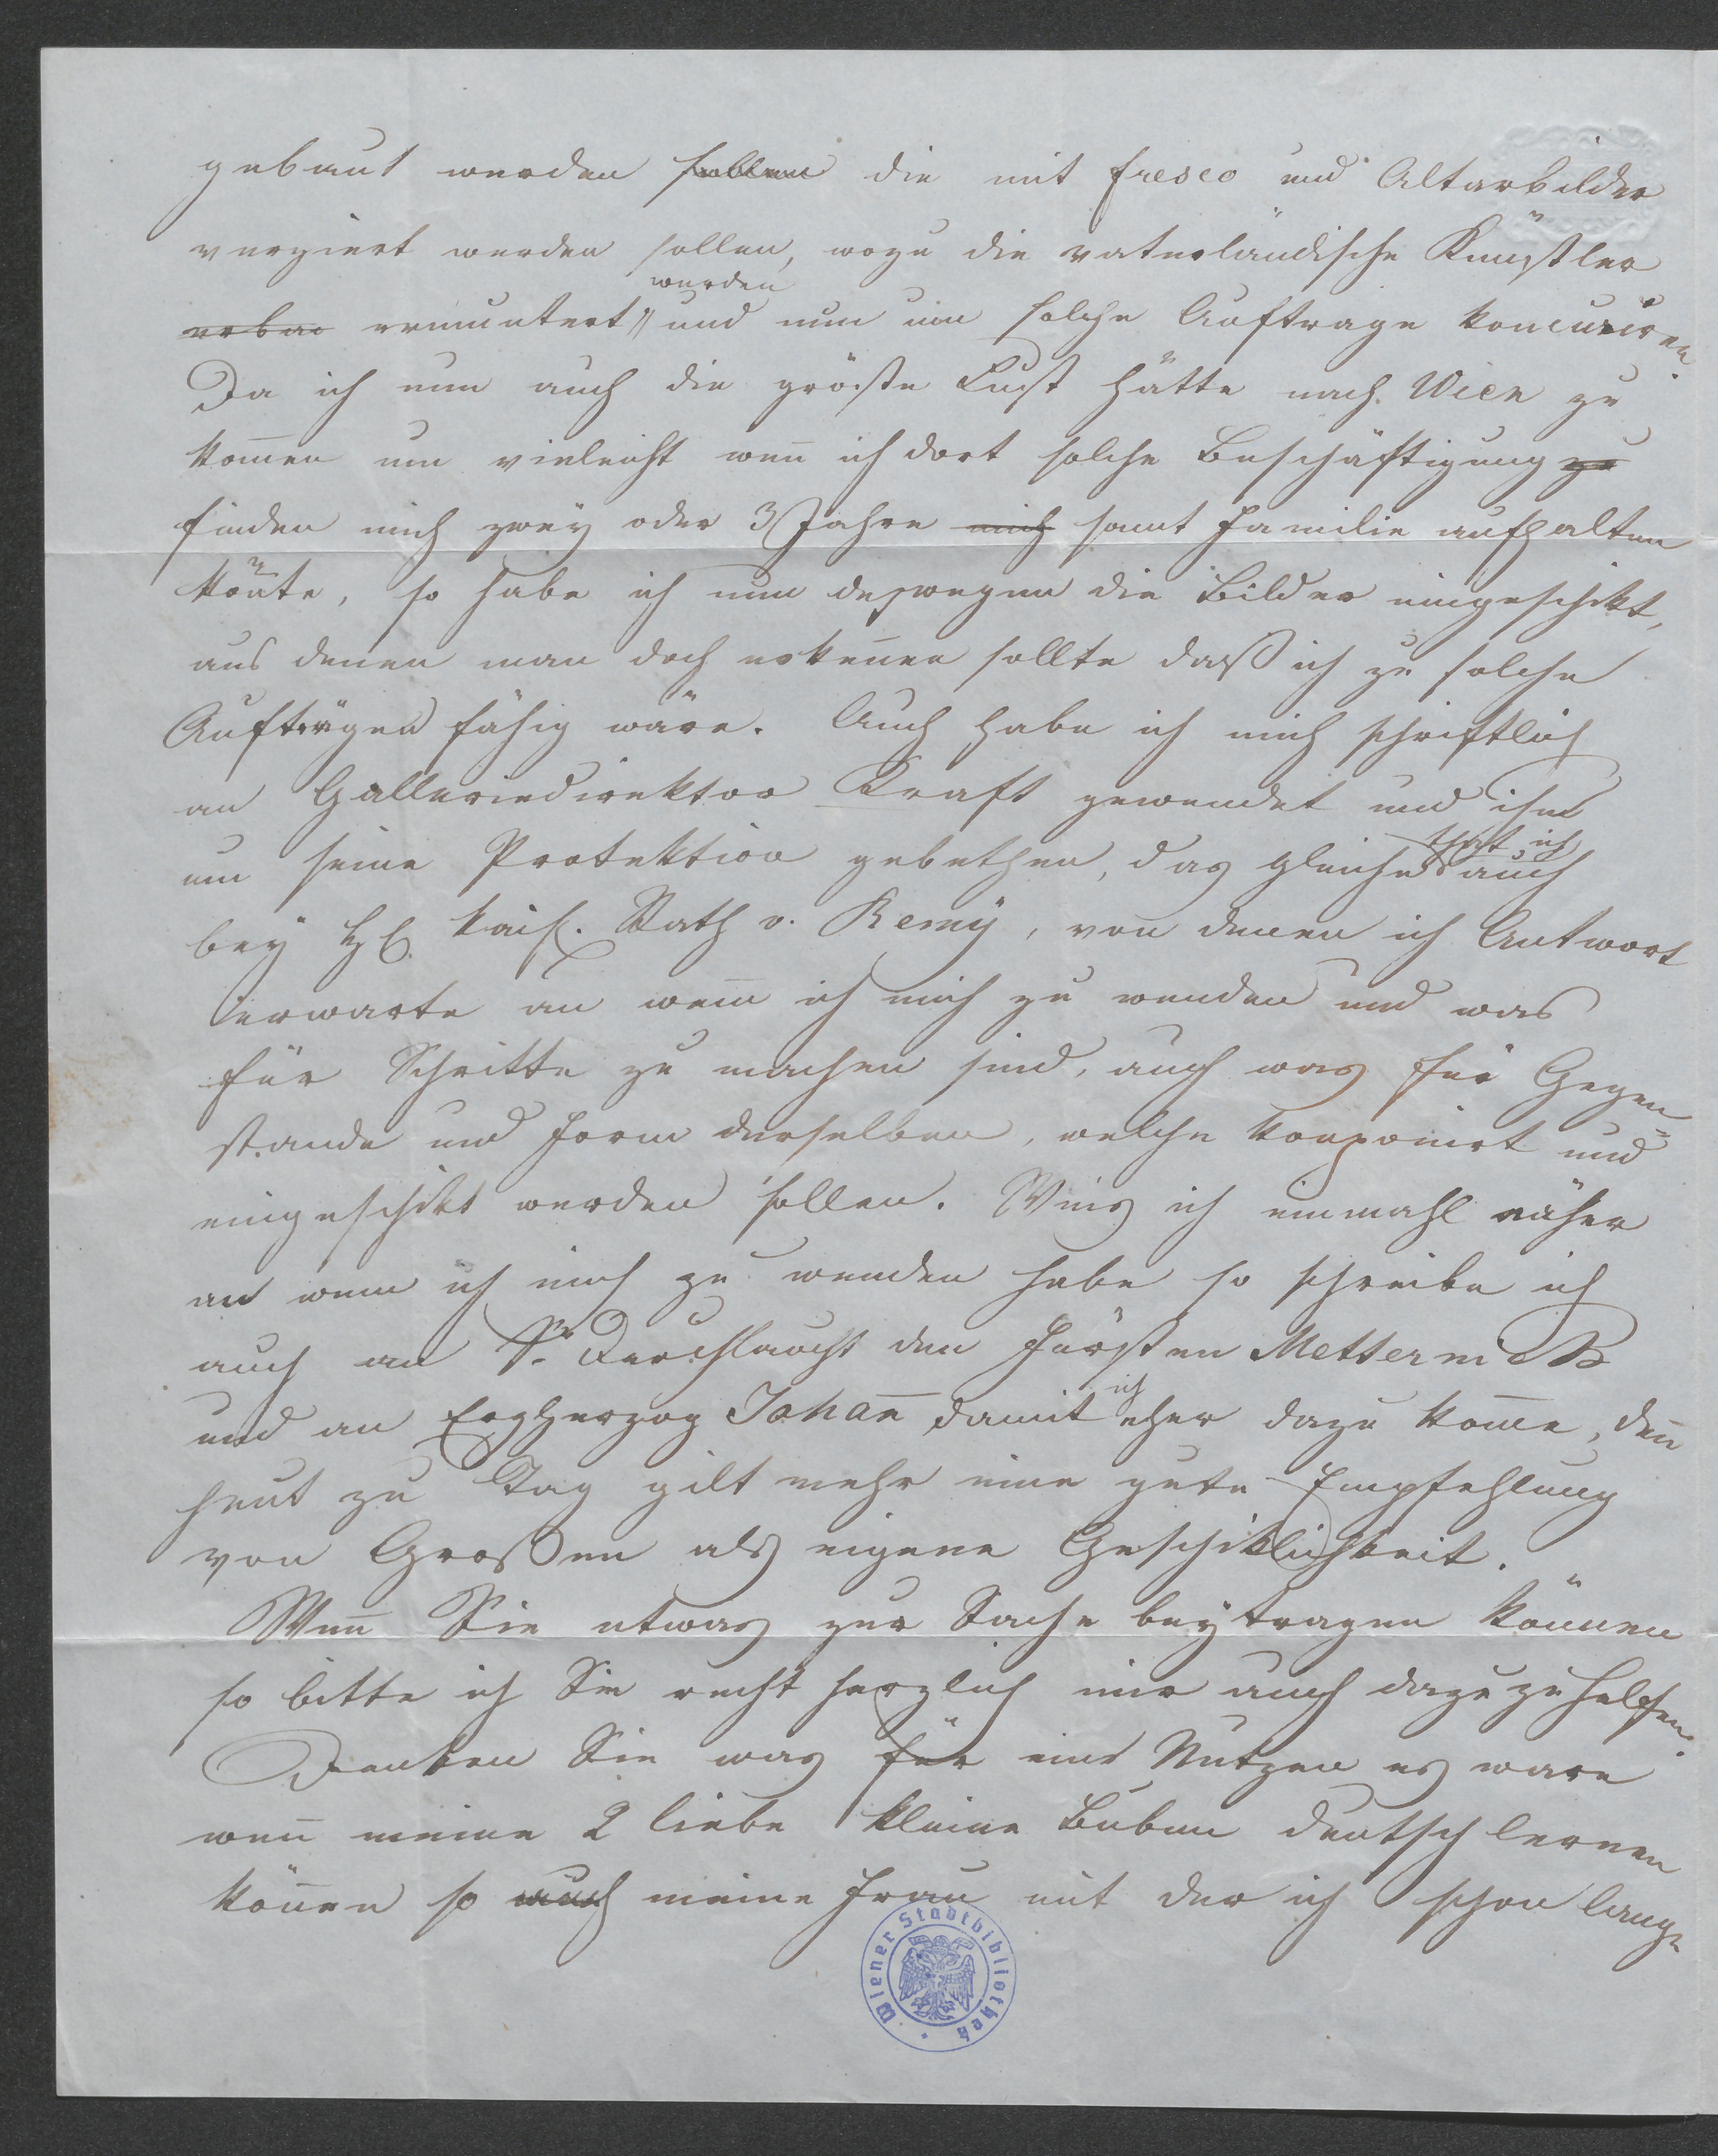 gebaut werden sollen die mit fresco und Altarbilder
verziert werden sollen, wozu die vaterländische Künstler
wurden
ermuntert und nun um solche Auftrage koncuriren.
Da ich nun auch die größte Lust hätte nach Wien zu
kom̄en um vieleicht wen̄ ich dort solche Beschäftigung zu
finden mich zweÿ oder 3 Jahre mich samt Familie aufhalten
kön̄te, so habe ich nun deswegen die Bilder eingeschikt,
aus denen man doch erken̄en sollte daß ich zu solche
Aufträgen fähig wäre. Auch habe ich mich schriftlich
an Galleriedirektor Kraft gewendet und ihn
um seine Protektion gebethen, das gleiche that ich auch
beÿ H. kais. Rath v. Remÿ, von denen ich Antwort
erwarte an wem ich mich zu wenden und was
für Schritte zu machen sind, auch was für Gegen=
stande und Form derselben, welche komponirt und
eingeschikt werden sollen. Weis ich einmahl näher
an wem ich mich zu wenden habe so schreibe ich
auch an Sr. Durchlaucht den Fürsten Metternich
und an Erzherzog Johan̄ damit ich eher dazu kom̄e, den̄
heut zu Tag gilt mehr eine gute Empfehlung
von Großen als eigene Geschiklichkeit.
Wen̄ Sie etwas zur Sache beÿtragen können
so bitte ich Sie recht herzlich mir auch dazu zu helfen.
Denken Sie was für eine Nutzen es ware
wen̄ meine 2 liebe kleine Buben deutsch lernen
kön̄en so auch meine Frau mit der ich schon lange
Wiener Stadtbibliothek